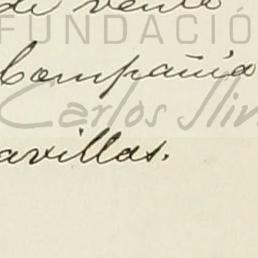 de venta
FUNDACIÓ
Compañía
Carlos Slim
avillas.